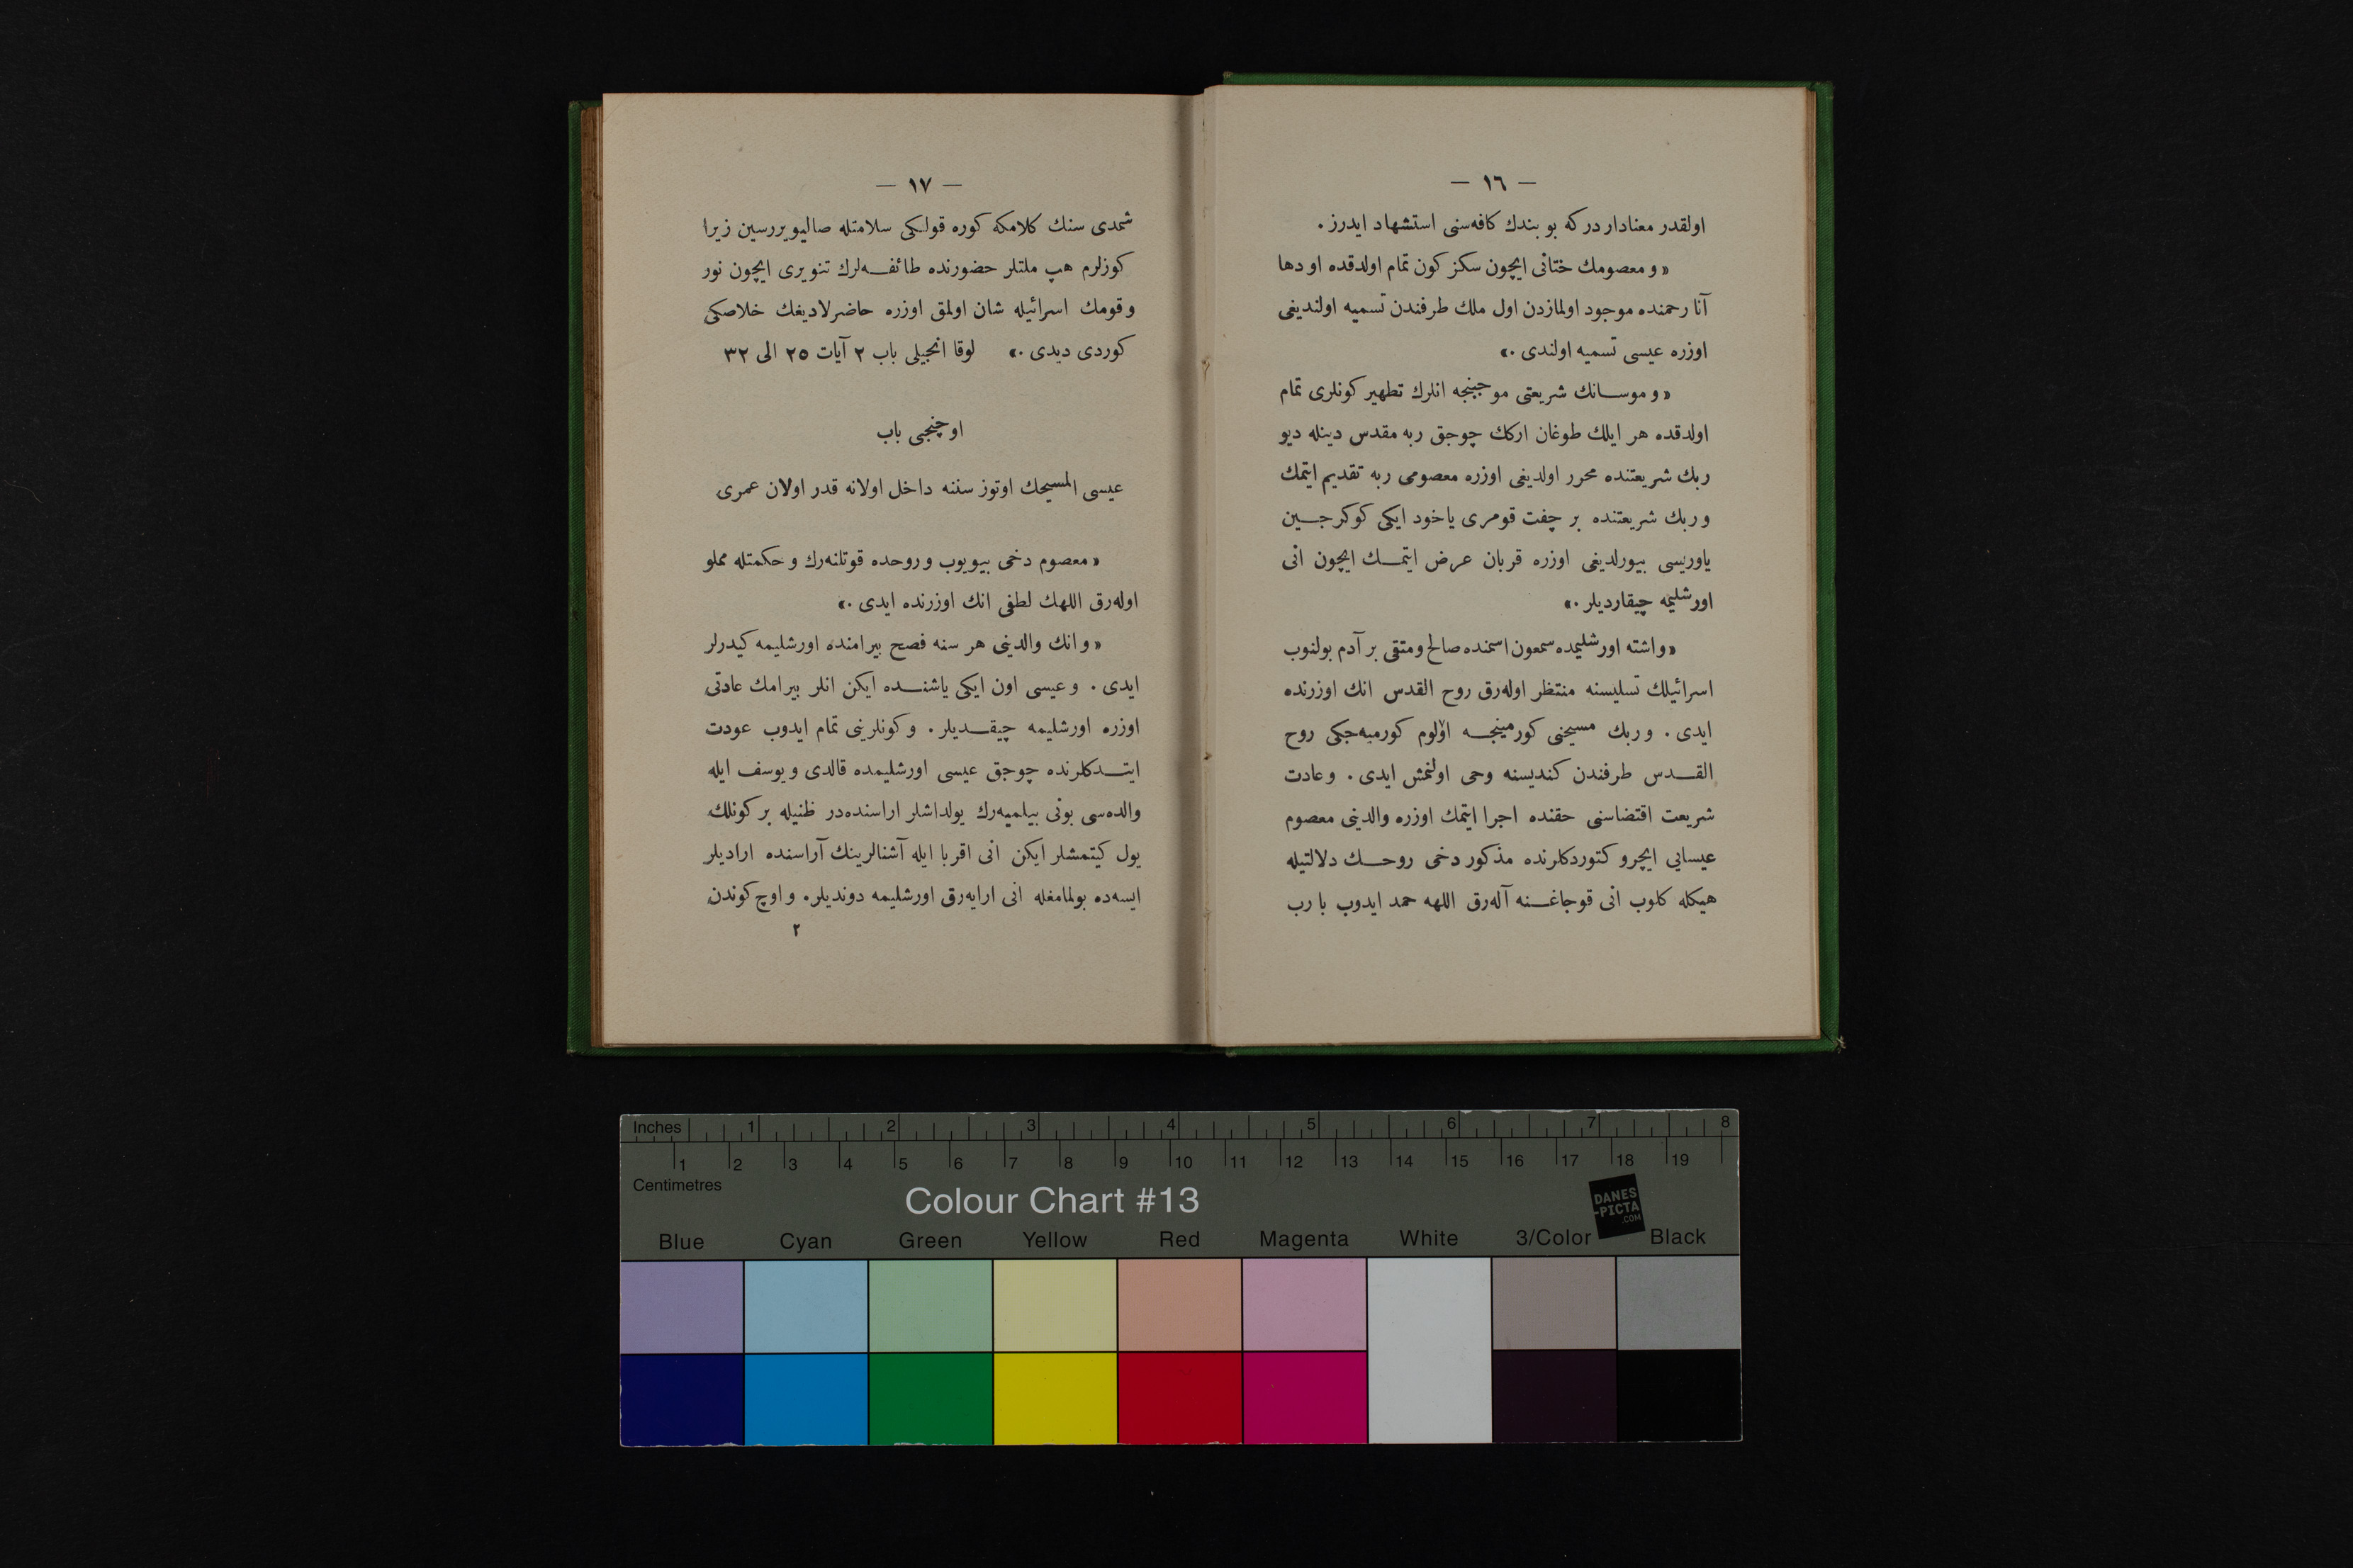 — ١٦ —
اولقدر معنادار دركه بو بندك كافه‌سنی استشهاد ایدرز .
« و معصومك ختانی ایچون سكز كون تمام اولدقده او دها
آنا رحمنده موجود اولمازدن اول ملك طرفندن تسمیه اولندیغی
اوزره عیسی تسمیه اولندی .»
« و موسـانك شریعتی موجبنجه انلرك تطهیر كونلری تمام
اولدقده هر ایلك طوغان اركك چوجق ربه مقدس دینله دیو
ربك شریعتنده محرر اولدیغی اوزره معصومی ربه تقدیم ایتمك
و ربك شریعتنده بر چفت قومری یاخود ایكی كوكرجـین
یاوریسی بیورلدیغی اوزره قربان عرض ایتمـك ایچون انی
اورشلیمه چیقاردیلر .»
« واشته اورشلیمده سمعون اسمنده صالح و متقی بر آدم بولنوب
اسرائیلك تسلیسنه منتظر اوله‌رق روح القدس انك اوزرنده
ایدی . و ربك مسیحنی كورمینجـه اولوم كورمیه‌جكی روح
القـدس طرفندن كندیسنه وحی اولنمش ایدی . وعادت
شریعت اقتضاسنی حقنده اجرا ایتمك اوزره والدینی معصوم
عیسایی ایچرو كتوردكلرنده مذكور دخی روحـك دلالتیله
هیكله كلوب انی قوجاغـنه آله‌رق اللهه حمد ایدوب یا رب
— ١٧ —
شمدی سنك كلامكه كوره قولـكی سلامتله صالیویررسین زیرا
كوزلرم هپ ملتلر حضورنده طائفـه‌لرك تنویری ایچون نور
و قومك اسرائیله شان اولمق اوزره حاضرلادیغك خلاصكی
كوردی دیدی .» لوقا انجیلی باب ٢ آیات ٢٥ الی ٣٢
اوچنجی باب
عیسی المسیحك اوتوز سننه داخل اولانه قدر اولان عمری
« معصوم دخی بیویوب و روحده قوتلنه‌رك و حكمتله مملو
اوله‌رق اللهك لطفی انك اوزرنده ایدی .»
« و انك والدینی هر سنه فصح بیرامنده اورشلیمه كیدرلر
ایدی . و عیسی اون ایكی یاشنـده ایكن انلر بیرامك عادتی
اوزره اورشلیمه چیقـدیلر . و كونلرینی تمام ایدوب عودت
ایتـدكلرنده چوجق عیسی اورشلیمده قالدی و یوسف ایله
والده‌سی بونی بیلمیه‌رك یولداشلر اراسنده‌در ظنیله بر كونلك
یول كیتمشلر ایكن انی اقربا ایله آشنالرینك آراسنده ارادیلر
ایسه‌ده بولمامغله انی ارایه‌رق اورشلیمه دوندیلر. و اوچ كوندن
٢
Inches 1 2 3 4 5 6 7 8
1 2 3 4 5 6 7 8 9 10 11 12 13 14 15 16 17 18 19
Centimetres
Colour Chart #13
DANES
-PICTA
.COM
Blue Cyan Green Yellow Red Magenta White 3/Color Black